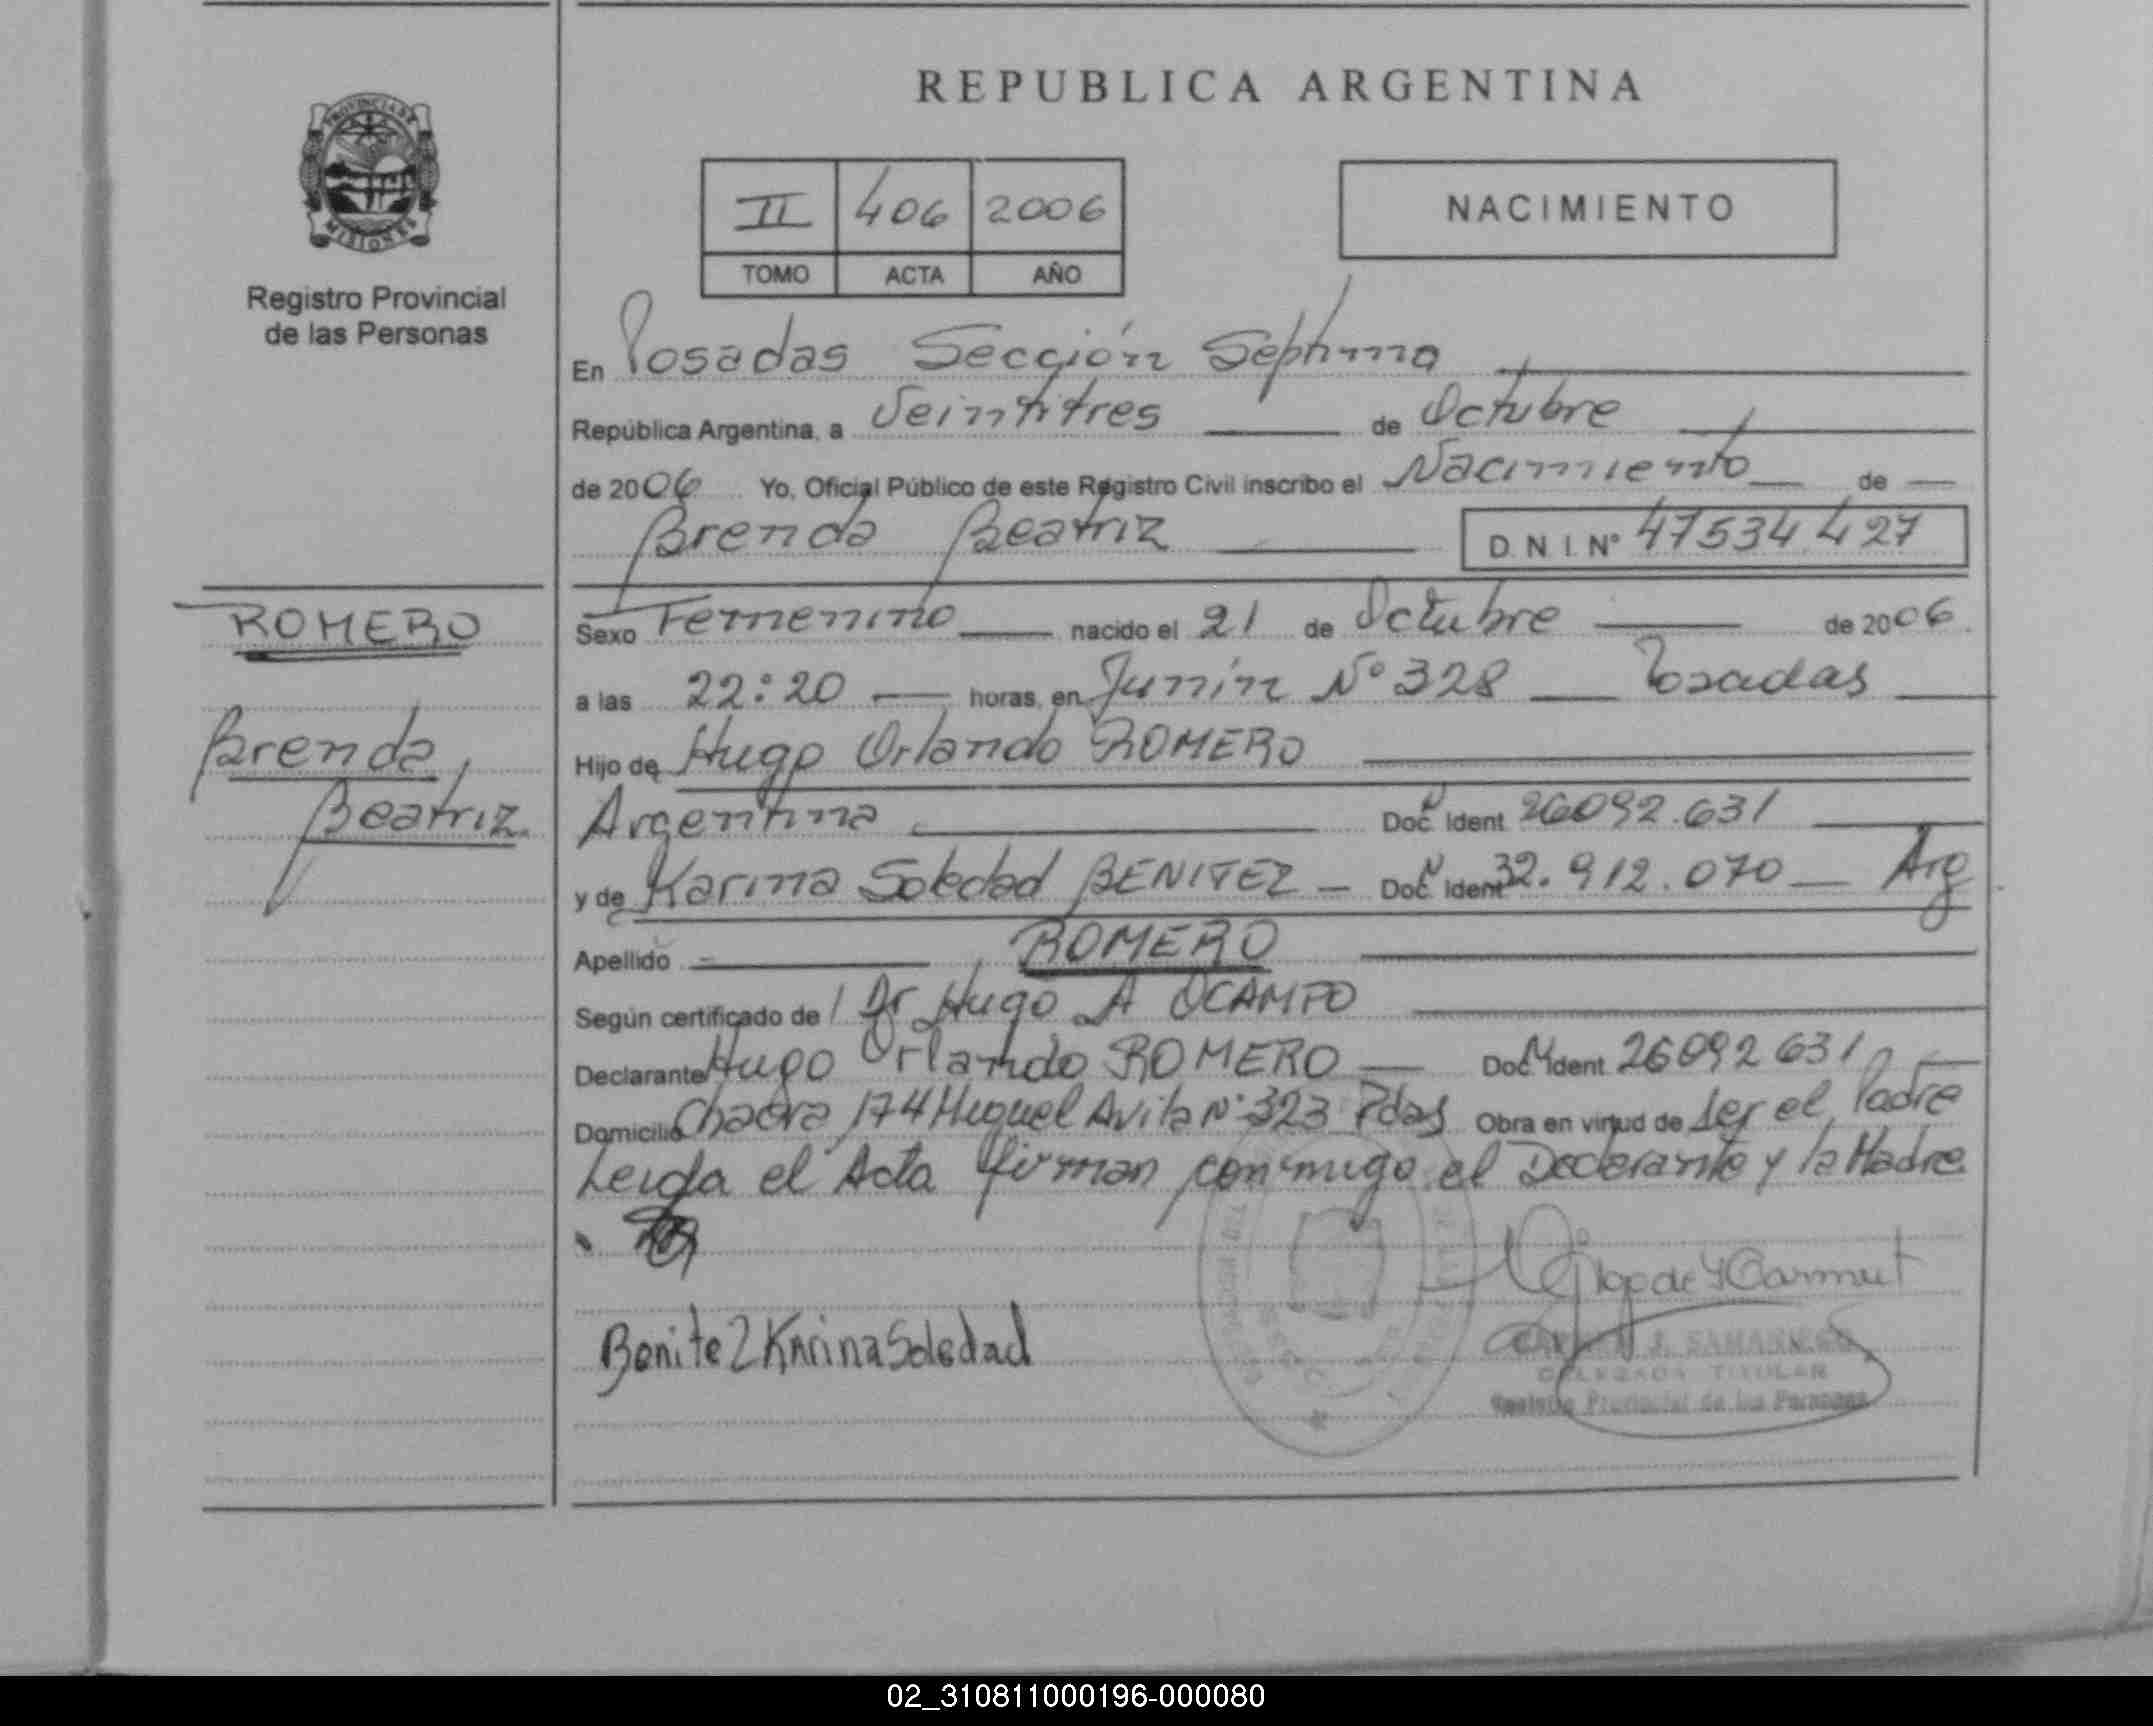 REPUBLICA ARGENTINA
PROVINCIA DE
MISIONES
Registro Provincial
de las Personas
II 406 2006
TOMO ACTA AÑO
NACIMIENTO
En Posadas Sección Septima
República Argentina, a Veintitres de Octubre
de 2006 Yo, Oficial Público de este Registro Civil inscribo el Nacimiento de
Brenda Beatriz D.N.I.Nº 47534.427
ROMERO
Brenda
Beatriz
Sexo Femenino nacido el 21 de Octubre de 2006
a las 22:20 horas, en Junín Nº 328 Posadas
Hijo de Hugo Orlando ROMERO
Argentina Doc. Ident 26092.631
y de Karina Soledad BENITEZ Doc. Ident 32.912.070 Arg
Apellido ROMERO
Según certificado de Dr Hugo A OCAMPO
Declarante Hugo Orlando ROMERO Doc. Ident 26092631
Domicilio Chacra 174 Miguel Avila Nº 323 Pdas Obra en virtud de ser el Padre
Leida el Acta firman conmigo el Declarante y la Madre
Benitez Karina Soledad
J. SAMANIEGO
DELEGADA TITULAR
Registro Provincial de las Personas
02_310811000196-000080